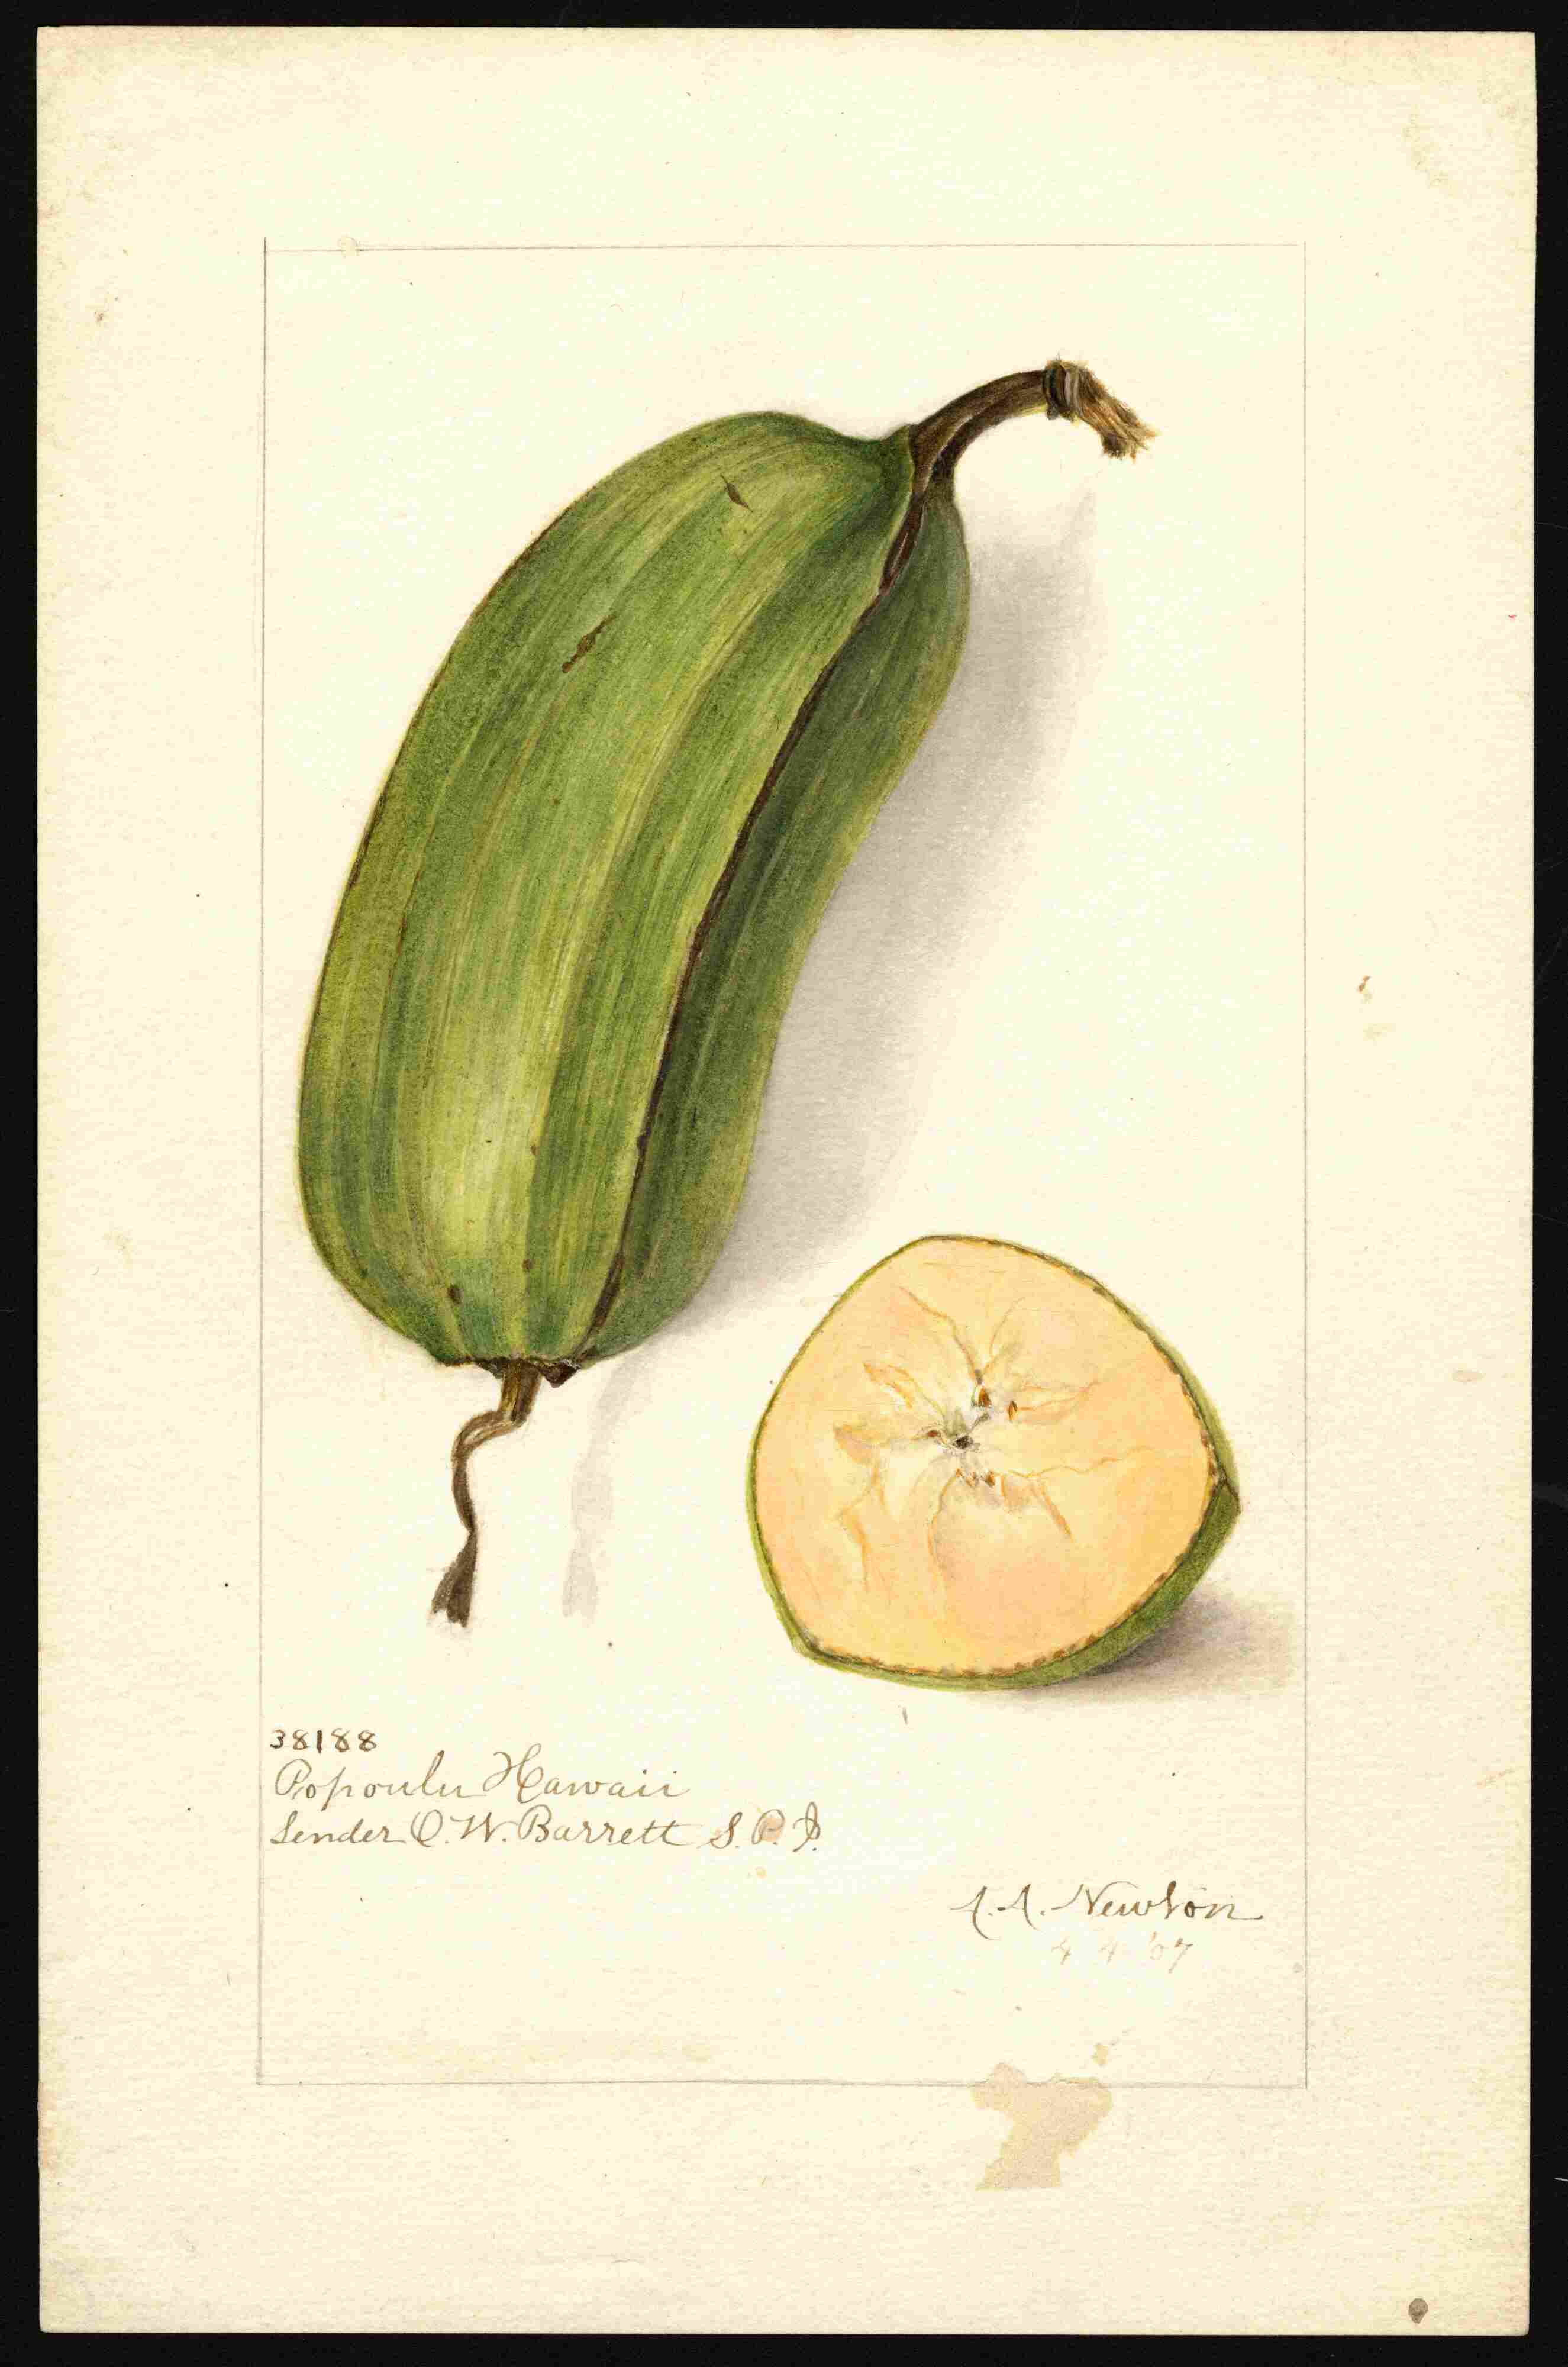 38188
Popoulu Hawaii
Sender O. W. Barrett S. P. I.
A. A. Newton
4 4 '07